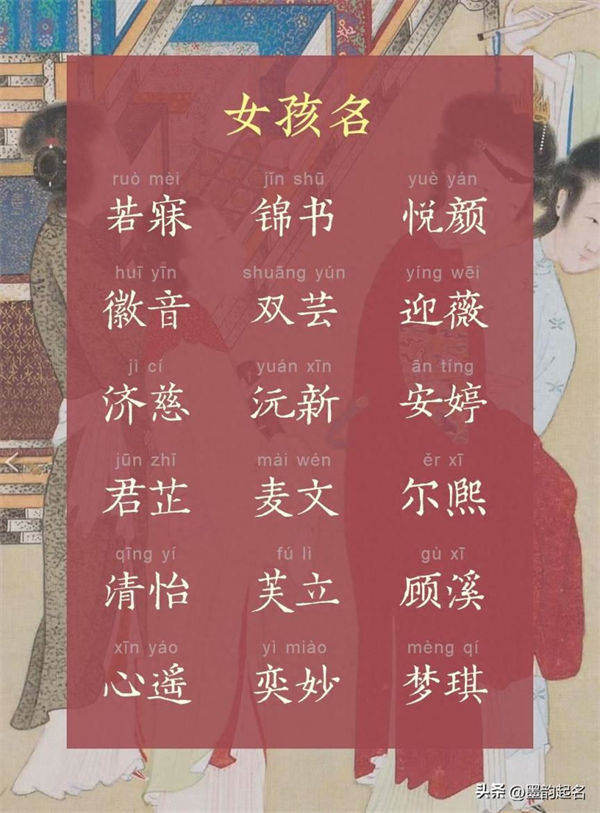 女孩名
ruò mèi jǐn shū yuè yán
若寐 锦书 悦颜
huī yīn shuāng yún yíng wēi
徽音 双芸 迎薇
jì cí yuán xīn ān tíng
济慈 沅新 安婷
jūn zhǐ mài wén ěr xī
君芷 麦文 尔熙
qīng yí fú lì gù xī
清怡 芙立 顾溪
xīn yáo yì miào mèng qí
心遥 奕妙 梦琪
头条 @墨韵起名